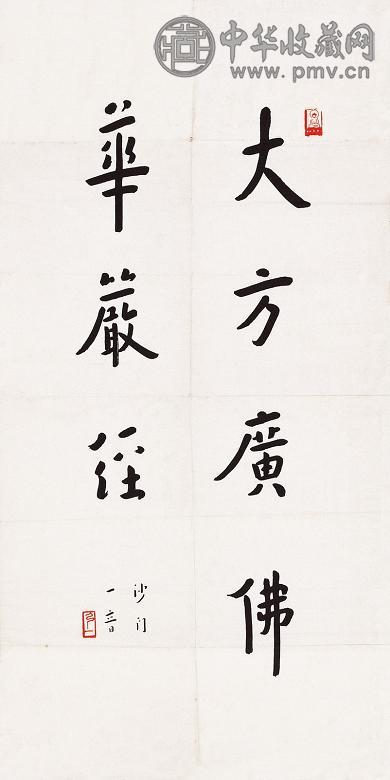 中华收藏网
www.pmv.cn
大方廣佛
華嚴經
沙門
一音